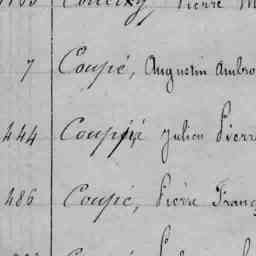 Pierre
7 Coupé, Augustin Ambro
444 Coupé Julien Pierre
486 Coupé, Pierre Franç